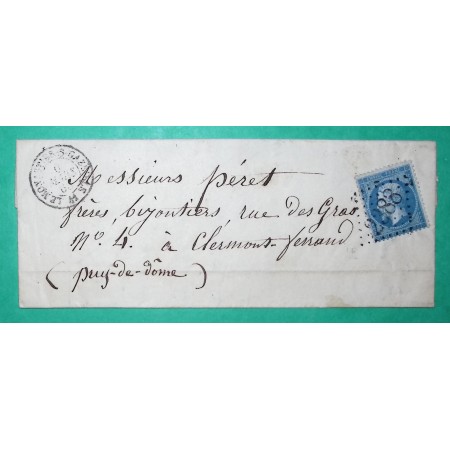 Messieurs péret
frères, bijoutiers, rue des Gras
N.º 4. à Clermont-ferrand
(puy-de-dôme)